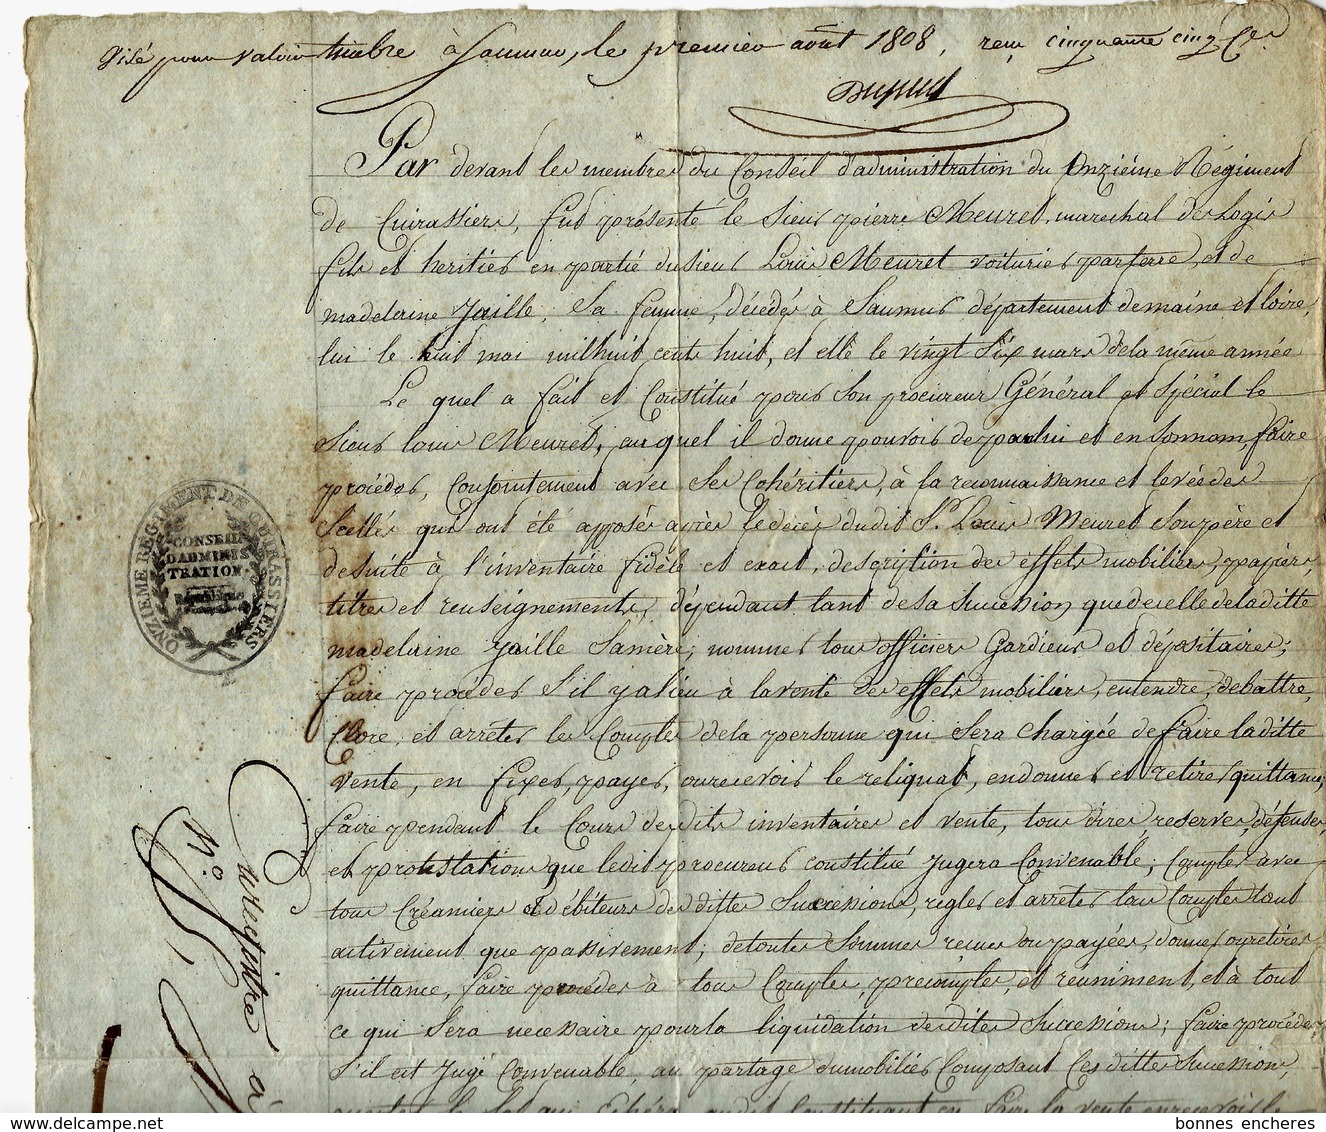 Visé pour valoir timbre à Saumur, le premier août 1808, reçu cinquante cinq Ces
Par devant les membres du Conseil d'administration du onzième Régiment
de Cuirassiers, fut présenté le Sieur pierre Meuret, marechal des Logis
fils et heritier en partie du sieur Louis Meuret voiturier par terre, et de
madelaine Jaille, Sa femme, décédés à Saumur département de maine et loire,
lui le huit mai mil huit cents huit, et elle le vingt Six mars de la même année
Le quel a fait et Constitué pour son procureur Général et spécial le
Sieur louis Meuret, au quel il donne pouvoir de pour lui et en son nom, faire
procéder, Conjointement avec Ses Cohéritiers, à la reconnaissance et levée des
Scellés qui ont été apposés après le décès dudit Sr. Louis Meuret Son père et
de suite à l'inventaire fidèle et exact, description des effets mobiliers, papiers,
titres et renseignements, dépendant tant de sa succession que de celle de la ditte
madelaine Jaille Sa mère; nommer tous officiers Gardiens et dépositaires;
faire procéder S'il y a lieu à la vente des effets mobiliers, entendre, debattre,
Clore, et arrêter les Comptes de la personne qui Sera chargée de faire la ditte
vente, en fixer, payer, ou recevoir le reliquat, en donner et retirer quittance;
faire pendant le Cours desdits inventaires et vente, tous dires, reserves, défenses,
et protestations que ledit procureur constitué Jugera Convenable; Compter avec
tous Créanciers et débiteurs des dittes Successions, régler et arrêter tous Comptes tant
activement que passivement; de toutes Sommes reçues ou payées, donner ou retirer
quittance, faire procéder à tous Comptes, précomptes, et réuniment, et à tout
ce qui Sera nécessaire pour la liquidation desdites Successions; faire procéder,
S'il est Jugé Convenable, au partage du mobilier Composant Ces dittes Successions,
ONZIEME REGIMENT DE CUIRASSIERS
CONSEIL
D'ADMINIS
TRATION
n°.
Enregistré à
bonnes encheres